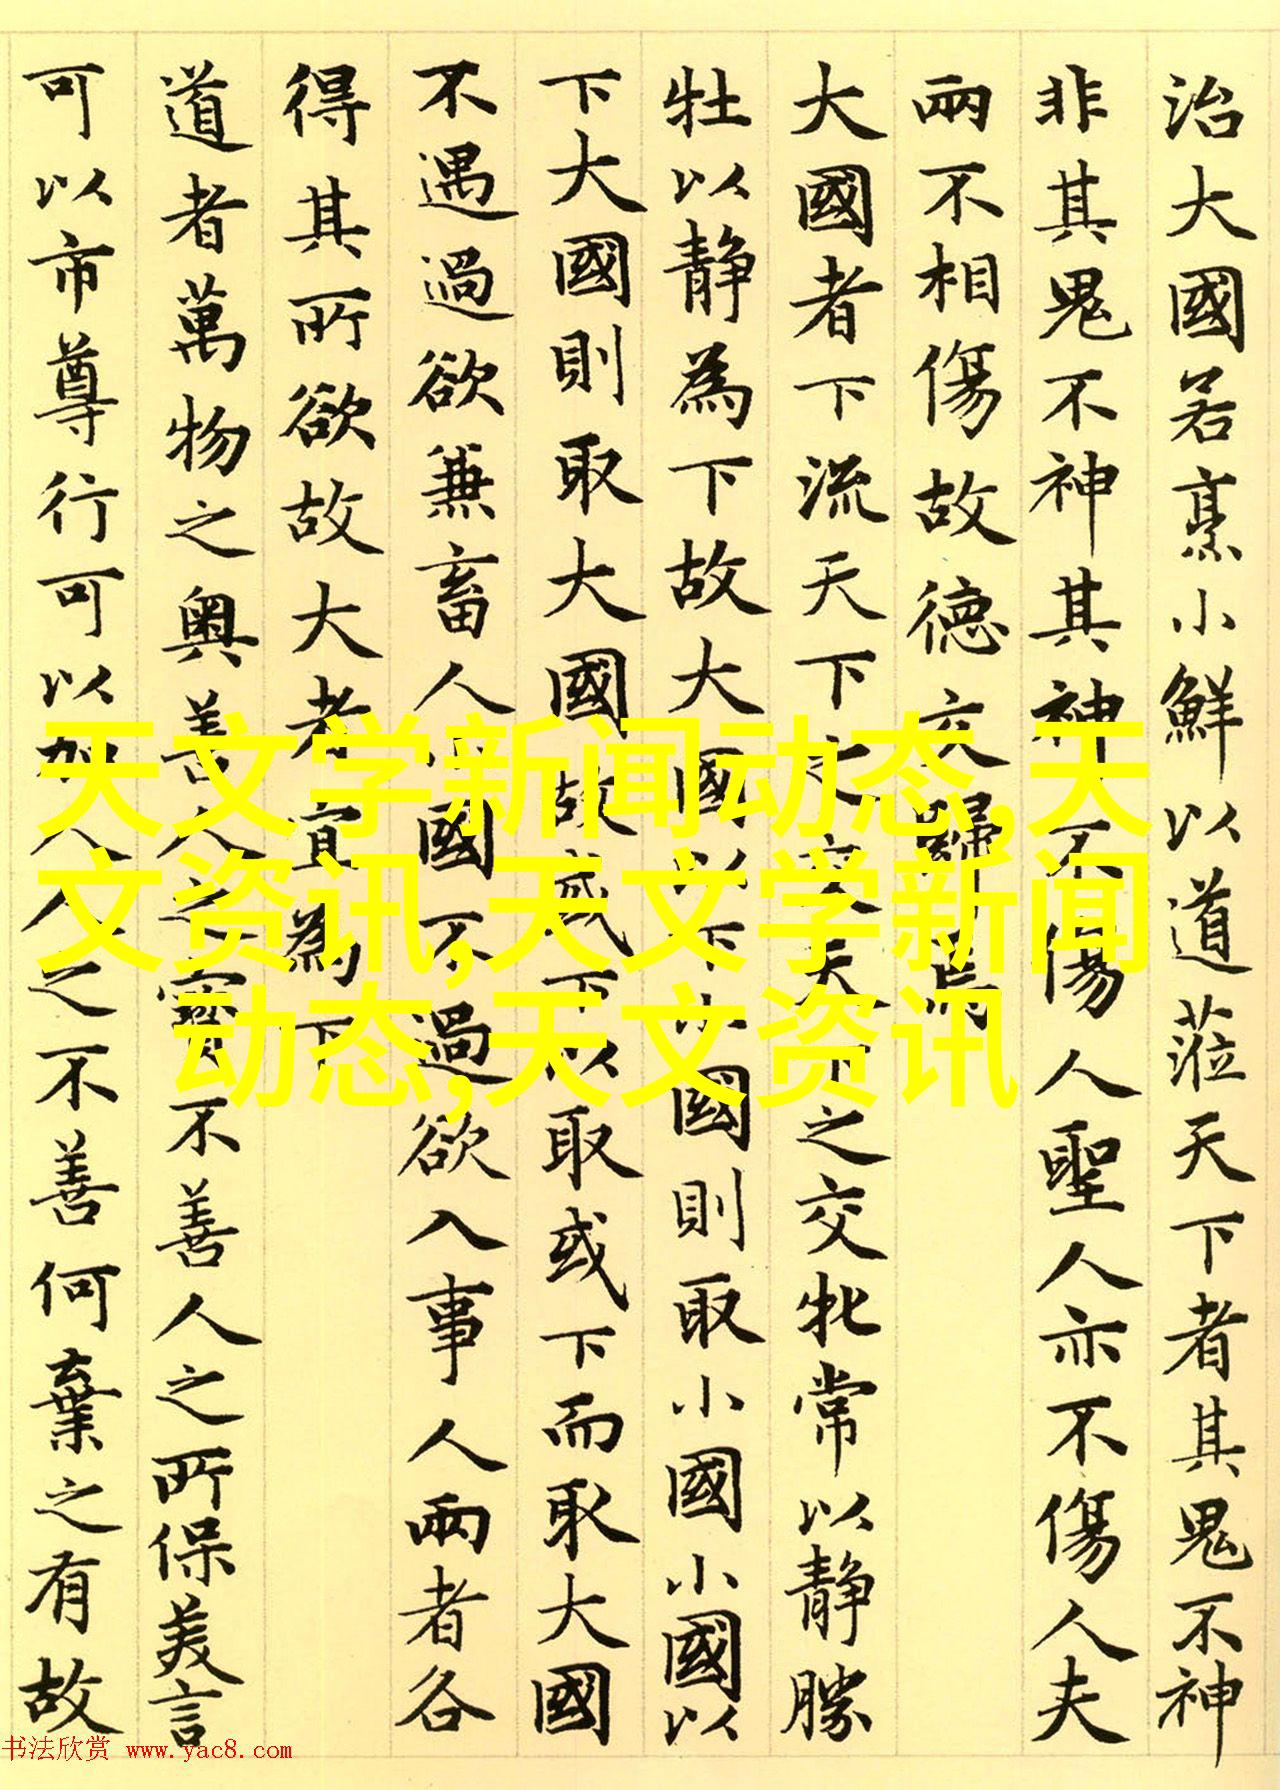 治大國若烹小鮮以道蒞天下者其鬼不神
非其鬼不神其神不傷人聖人亦不傷人夫
兩不相傷故德交歸焉
大國者下流天下之交天下之交牝常以靜勝
牡以靜為下故大國以下小國則取小國小國以
下大國則取大國故或下以取或下而取大國
不遇過欲兼畜人小國不過欲入事人兩者各
得其所欲故大者宜為下
道者萬物之奧善人之寶不善人之所保美言
可以市尊行可以加人人之不善何棄之有故
天文学新闻动态,天
文资讯,天文学新闻
动态,天文资讯
书法欣赏 www.yac8.com